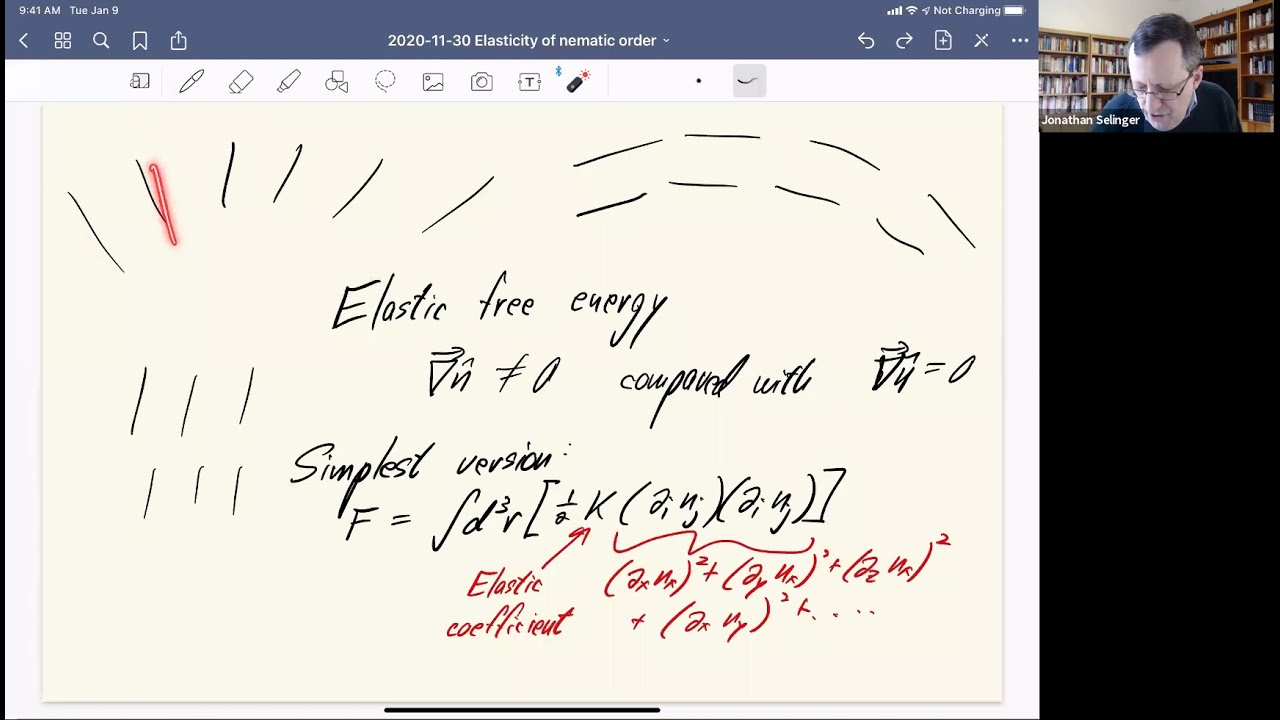 9:41 AM Tue Jan 9
Not Charging
2020-11-30 Elasticity of nematic order
Jonathan Selinger
Elastic free energy
∇⃗n̂ ≠ 0 compared with ∇⃗n̂ = 0
Simplest version:
F = ∫d³r[½K(∂ᵢnⱼ)(∂ᵢnⱼ)]
Elastic
coefficient
(∂ₓnₓ)² + (∂ᵧnₓ)² + (∂_z nₓ)²
+ (∂ₓnᵧ)² + .....